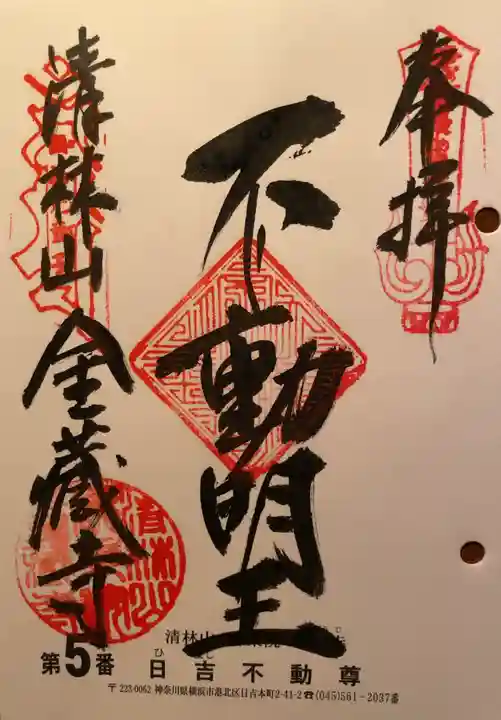 奉拝
不動明王
清林山
金蔵寺
清林山
第5番 日吉不動尊
ひ
〒223-0062 神奈川県横浜市港北区日吉本町2-41-2☎(045)561-2037番